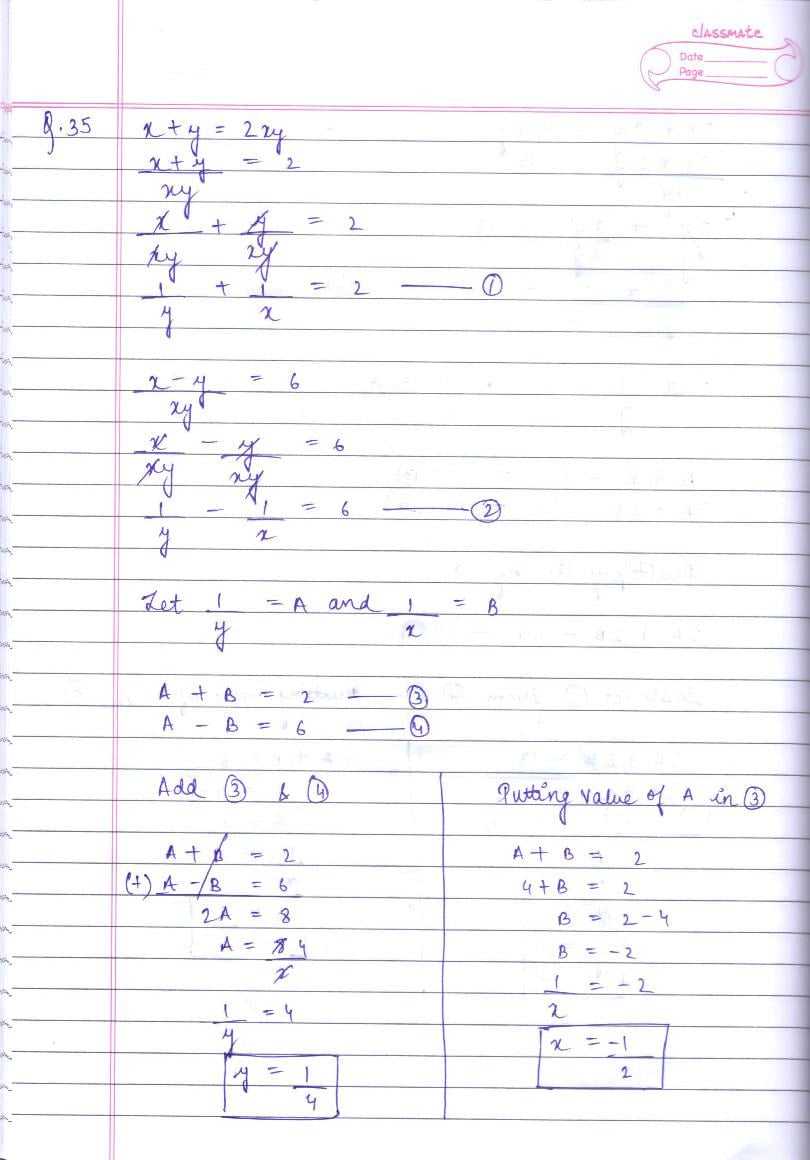 classmate
Date
Page
Q.35 x + y = 2xy
x + y = 2
xy
x + y = 2
xy xy
1 + 1 = 2 —— ①
y x
x - y = 6
xy
x - y = 6
xy xy
1 - 1 = 6 —— ②
y x
Let 1 = A and 1 = B
y x
A + B = 2 —— ③
A - B = 6 —— ④
Add ③ & ④
A + B = 2
(+) A - B = 6
2A = 8
A = 8 4
2
1 = 4
y
y = 1
4
Putting value of A in ③
A + B = 2
4 + B = 2
B = 2 - 4
B = -2
1 = -2
x
x = -1
2